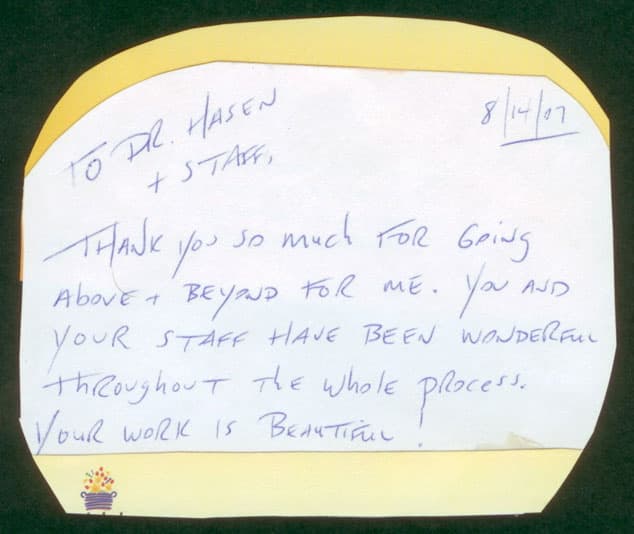 TO DR. HASEN
8/14/07
+ STAFF,
THANK YOU SO MUCH FOR GOING
ABOVE + BEYOND FOR ME. YOU AND
YOUR STAFF HAVE BEEN WONDERFUL
THROUGHOUT THE WHOLE PROCESS.
YOUR WORK IS BEAUTIFUL!